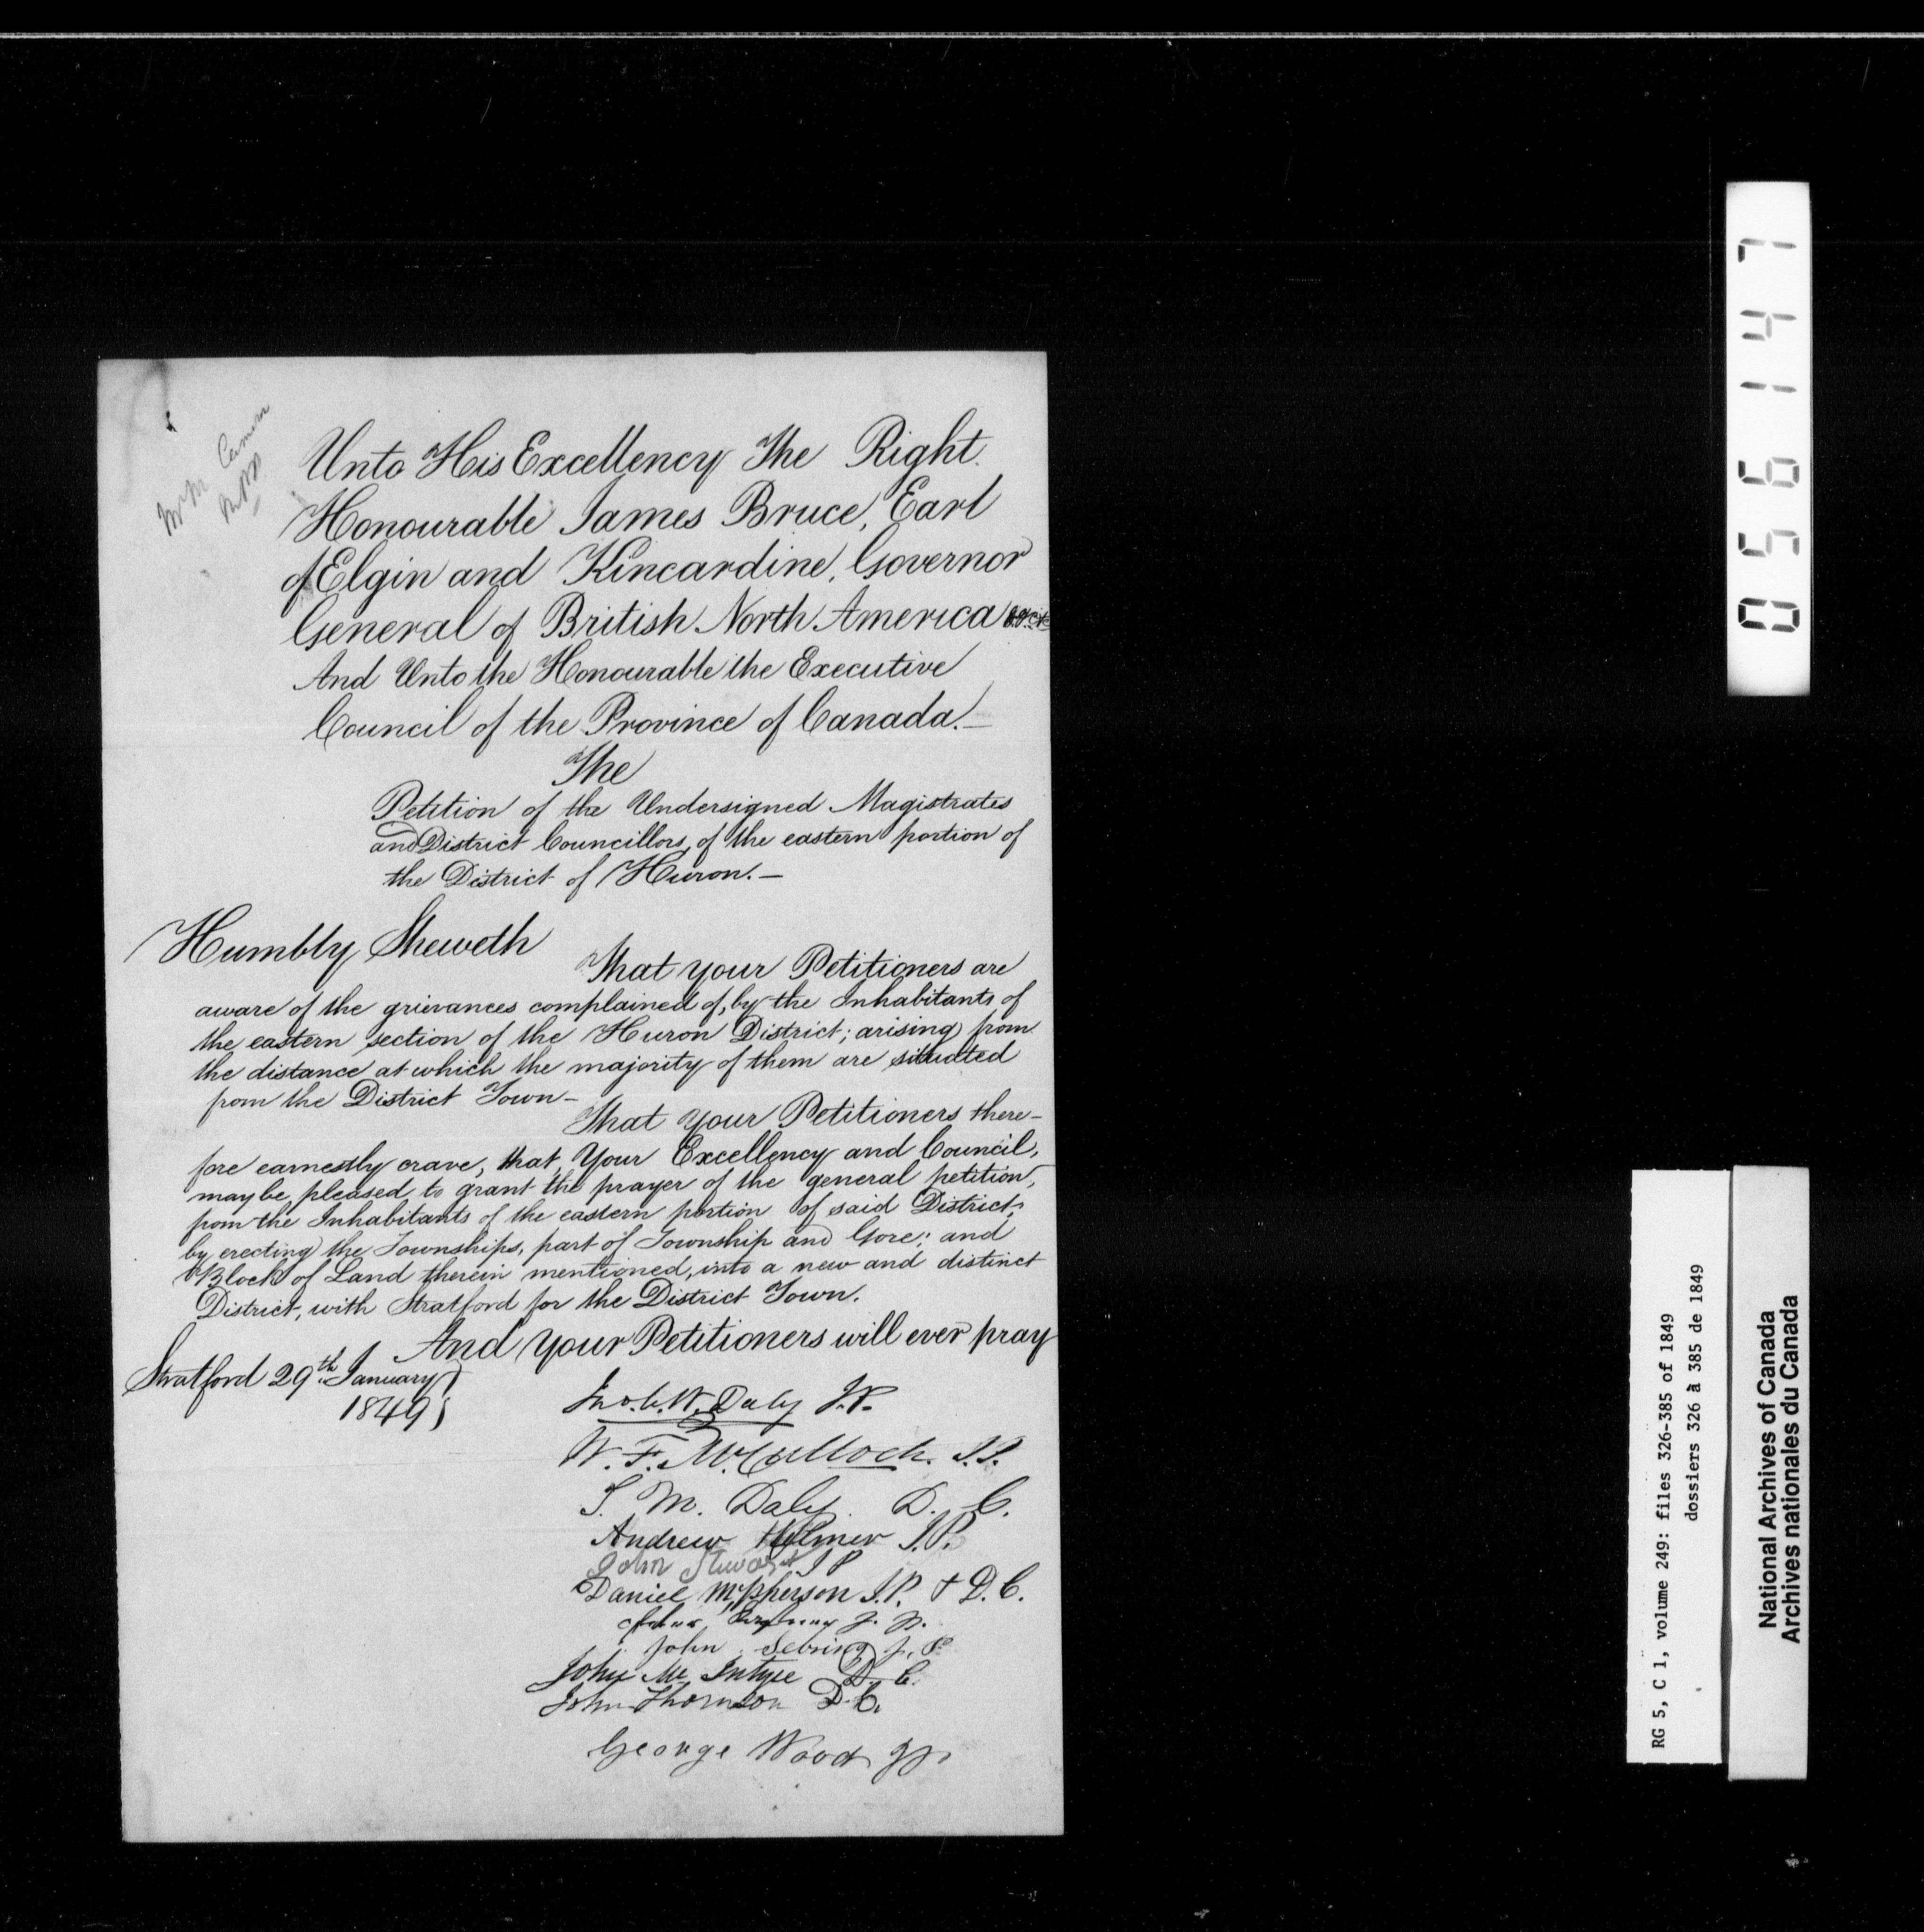 Mr M Cameron
MPP
Unto His Excellency The Right
Honourable James Bruce, Earl
of Elgin and Kincardine, Governor
General of British North America &c &c &c
And Unto the Honourable the Executive
Council of the Province of Canada.—
The
Petition of the Undersigned Magistrates
and District Councillors, of the eastern portion of
the District of Huron.—
Humbly Sheweth
That your Petitioners are
aware of the grievances complained of, by the Inhabitants of
the eastern section of the Huron District; arising from
the distance at which the majority of them are situated
from the District Town—
That your Petitioners there-
fore earnestly crave, that, Your Excellency and Council,
may be pleased to grant the prayer of the general petition,
from the Inhabitants of the eastern portion of said District;
by erecting the Townships, part of Township and Gore; and
Block of Land therein mentioned, into a new and distinct
District, with Stratford for the District Town.
And your Petitioners will ever pray
Stratford 29th January
1849
Jno. C. W. Daly J.P.
W. F. McCulloch. J.P.
T. M. Daly. D. C.
Andrew Helmer J.P.
John Stewart J P
Daniel McPherson J.P. & D.C.
J. P.
John Sebring J. P.
John Mc Intyre D. C.
John Thomson D.C.
George Wood JP
056147
RG 5, C 1, volume 249: files 326-385 of 1849
dossiers 326 à 385 de 1849
National Archives of Canada
Archives nationales du Canada